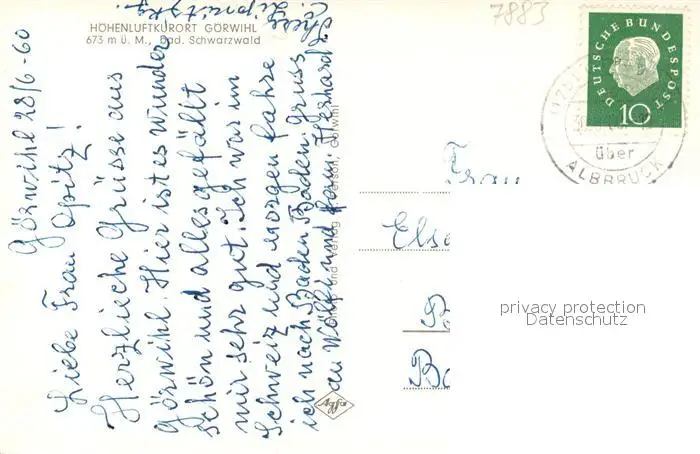 HÖHENLUFTKURORT GÖRWIHL
673 m ü. M., Bad. Schwarzwald
7883
Görwihl 28/6-60
Liebe Frau Opitz!
Herzliche Grüsse aus
Görwihl. Hier ist es wunder
schön und alles gefällt
mir sehr gut. Ich war in
Schweiz und morgen fahre
ich nach Baden Baden. Gruss
an Wölfi und Fam.
Ihre
DEUTSCHE BUNDESPOST
10
über
ALBBRUCK
Frau
Else
privacy protection
Datenschutz
Agfa